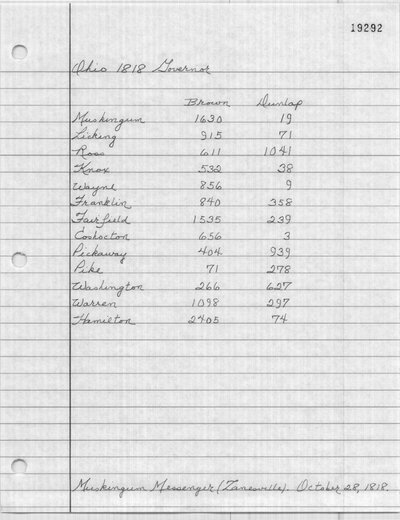 19292
Ohio 1818 Governor
Brown Dunlap
Muskingum 1630 19
Licking 915 71
Ross 611 1041
Knox 532 38
Wayne 856 9
Franklin 840 358
Fairfield 1535 239
Coshocton 656 3
Pickaway 404 939
Pike 71 278
Washington 266 627
Warren 1098 297
Hamilton 2405 74
Muskingum Messenger (Zanesville). October 28, 1818.